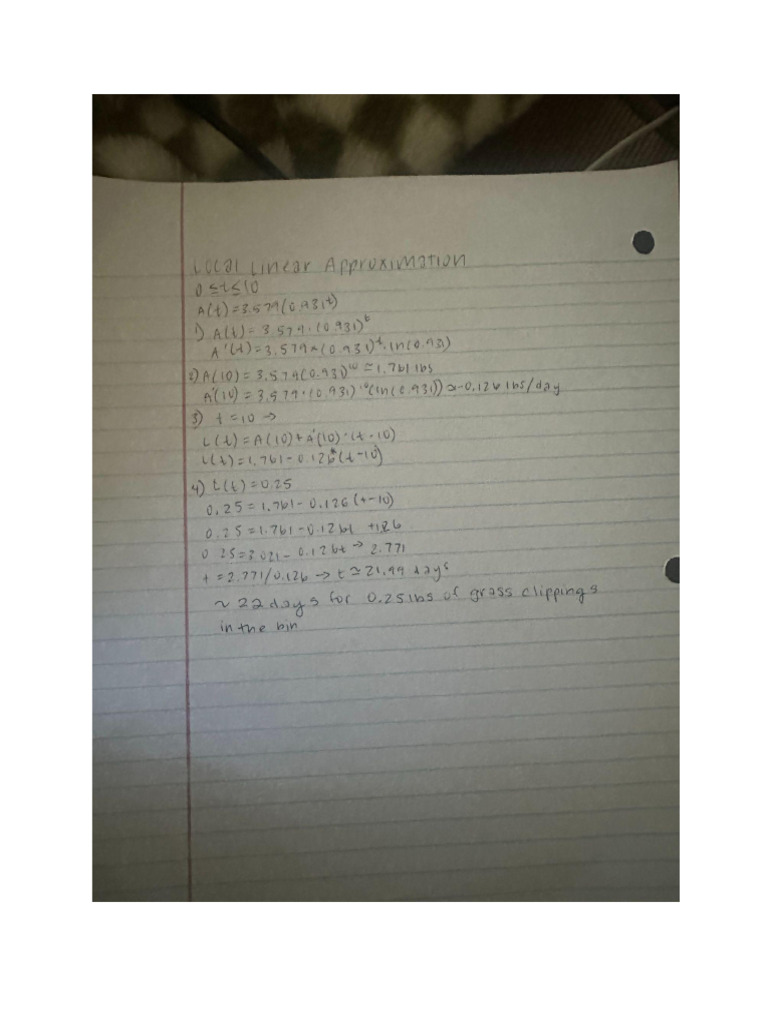 Local Linear Approximation
0 ≤ t ≤ 10
A(t) = 3.579(0.931^t)
1) A(t) = 3.579 · (0.931)^t
A'(t) = 3.579 * (0.931)^t · ln(0.931)
2) A(10) = 3.579(0.931)^10 ≃ 1.761 lbs
A'(10) = 3.579 · (0.931)^10 (ln(0.931)) ≈ -0.126 lbs/day
3) t = 10 →
L(t) = A(10) + A'(10) · (t - 10)
L(t) = 1.761 - 0.126 * (t - 10)
4) L(t) = 0.25
0.25 = 1.761 - 0.126 (t - 10)
0.25 = 1.761 - 0.126t + 1.26
0.25 = 3.021 - 0.126t → 2.771
t = 2.771/0.126 → t ≃ 21.99 days
~ 22 days for 0.25 lbs of grass clippings
in the bin